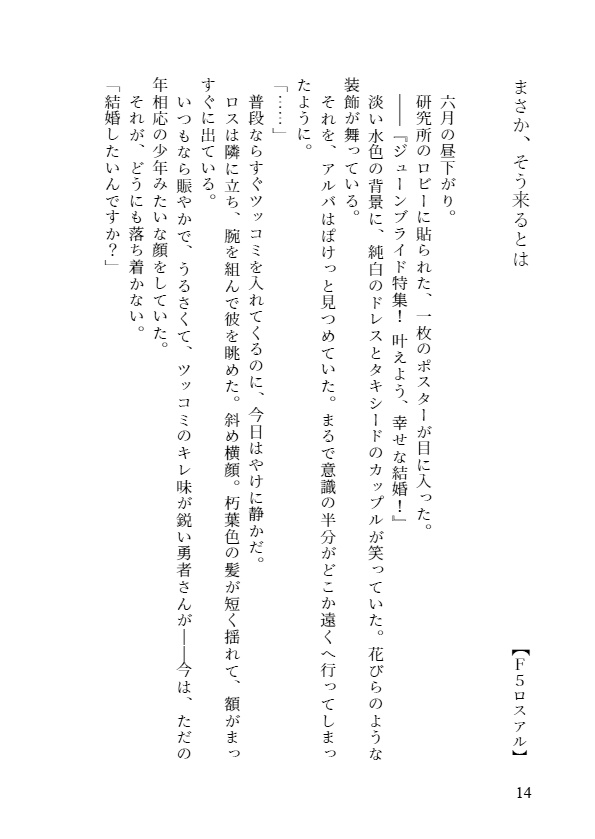 まさか、そう来るとは
【Ｆ５ロスアル】
六月の昼下がり。
研究所のロビーに貼られた、一枚のポスターが目に入った。
――『ジューンブライド特集！ 叶えよう、幸せな結婚！』
淡い水色の背景に、純白のドレスとタキシードのカップルが笑っていた。花びらのような
装飾が舞っている。
それを、アルバはぽけっと見つめていた。まるで意識の半分がどこか遠くへ行ってしまっ
たように。
「……」
普段ならすぐツッコミを入れてくるのに、今日はやけに静かだ。
ロスは隣に立ち、腕を組んで彼を眺めた。斜め横顔。朽葉色の髪が短く揺れて、額がまっ
すぐに出ている。
いつもなら賑やかで、うるさくて、ツッコミのキレ味が鋭い勇者さんが――今は、ただの
年相応の少年みたいな顔をしていた。
それが、どうにも落ち着かない。
「結婚したいんですか？」
14